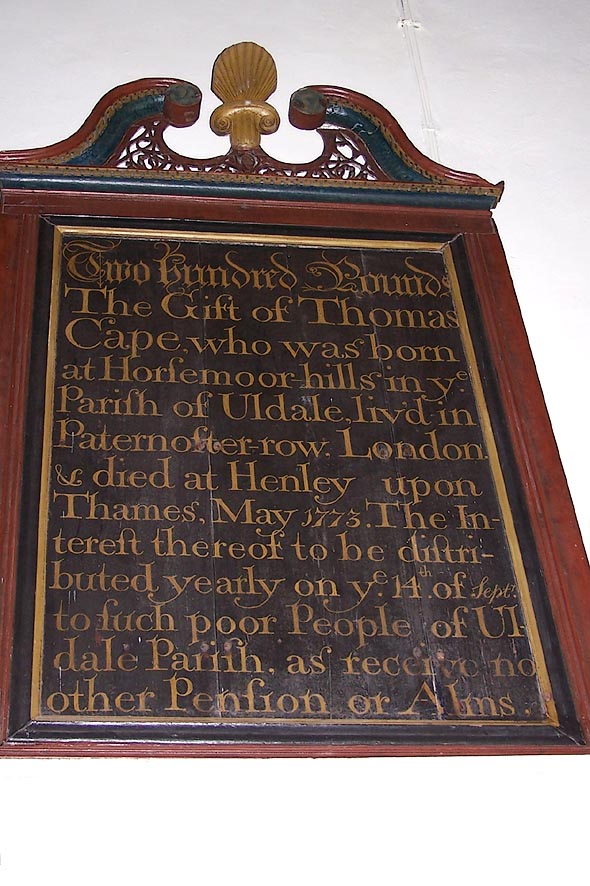 Two hundred Pounds
The Gift of Thomas
Cape, who was born
at Horſemoor-hills in yᵉ
Pariſh of Uldale, liv'd in
Paternoſter-row, London
& died at Henley upon
Thames, May 1773. The In-
tereſt thereof to be diſtri-
buted yearly on yᵉ 14ᵗʰ of Septʳ.
to ſuch poor People of Ul-
dale Pariſh, as receive no
other Penſion or Alms.